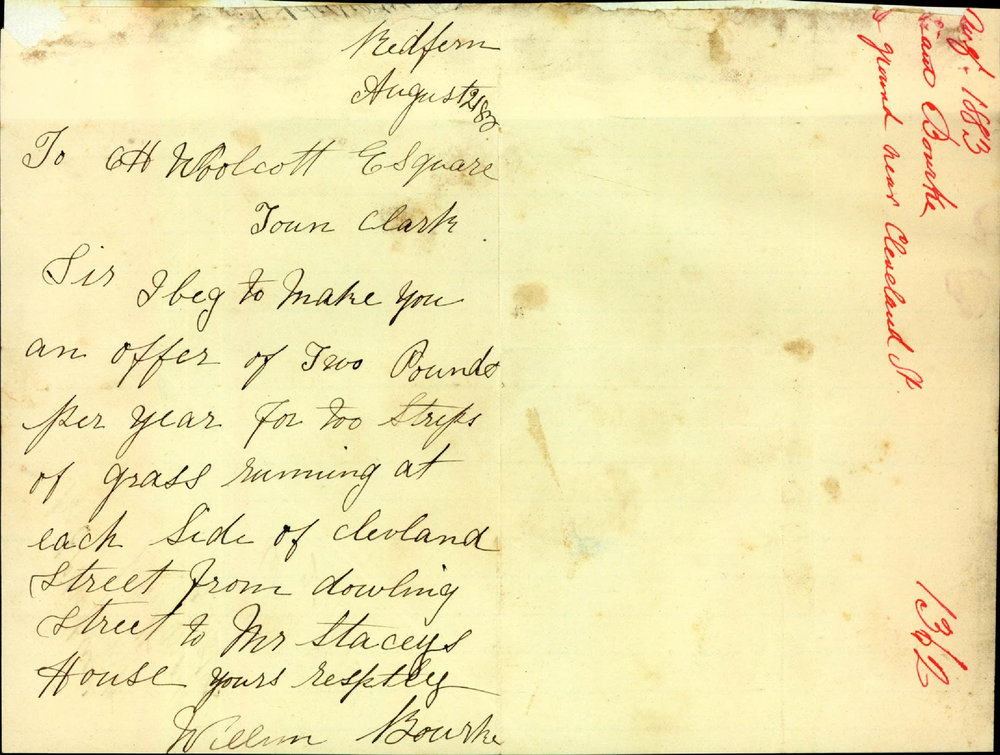 Redfern
August 2 83
To CH Woolcott Esquare
Toun Clark
Sir I beg to Make You
an offer of Two Pounds
per year for too Strips
of grass running at
each Side of clevland
Street from dowling
Street to Mr Staceys
House yours resptley
Willim Bourke
Augt. 1883
Bourke
ground near Cleveland St.